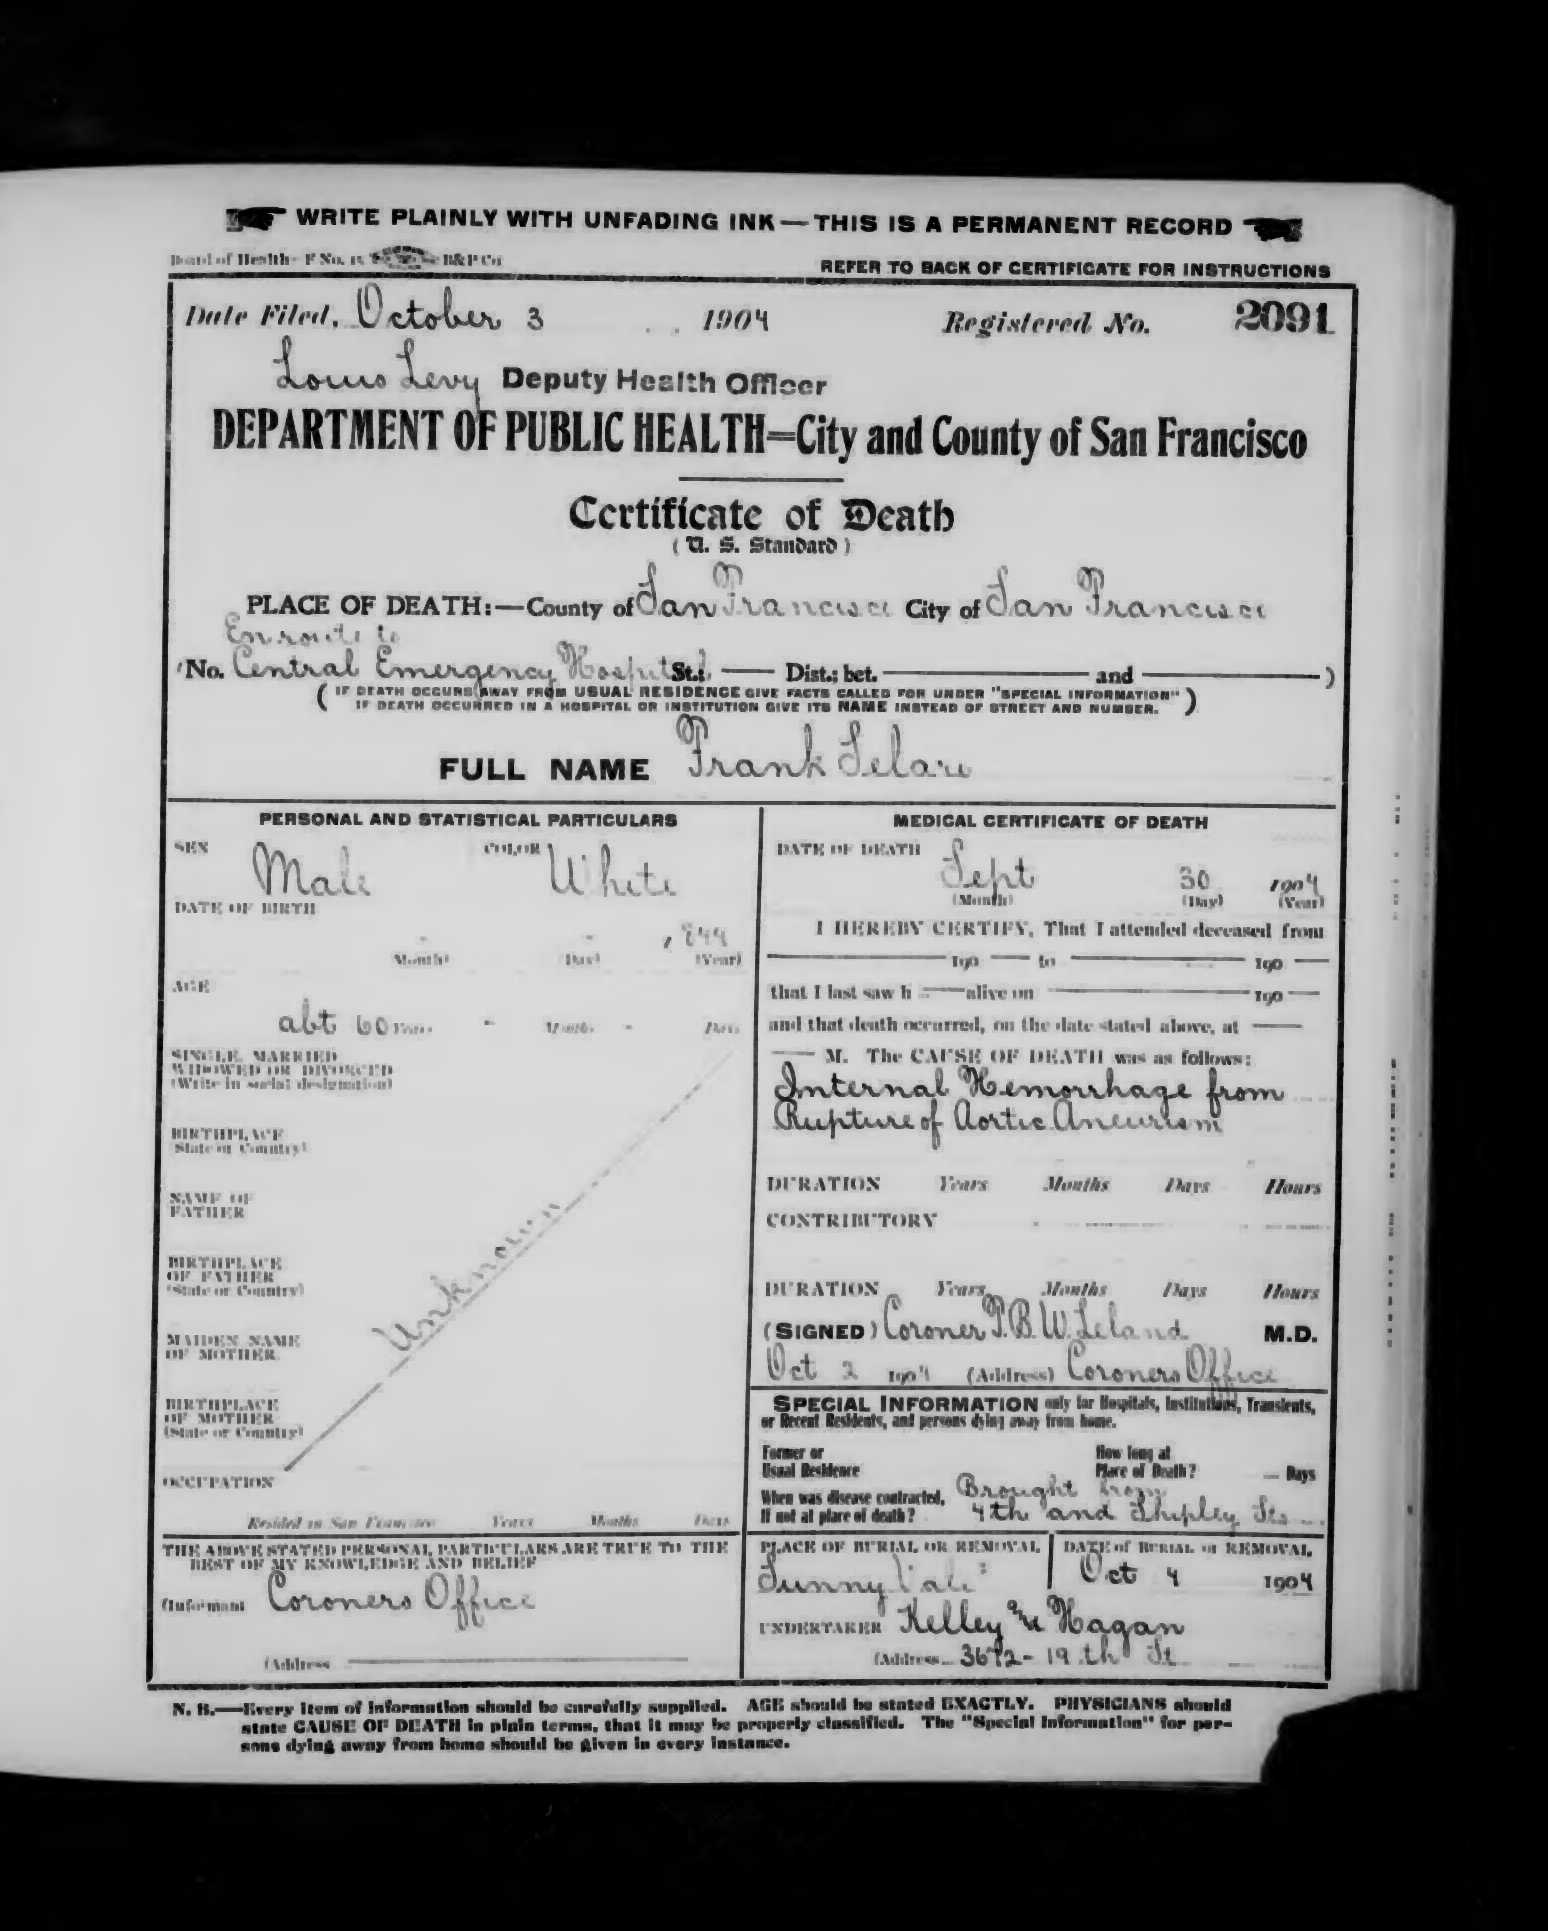 WRITE PLAINLY WITH UNFADING INK — THIS IS A PERMANENT RECORD
Board of Health F No. 15 B&P Co
REFER TO BACK OF CERTIFICATE FOR INSTRUCTIONS
Date Filed, October 3 1904 Registered No. 2091
Louis Levy Deputy Health Officer
DEPARTMENT OF PUBLIC HEALTH=City and County of San Francisco
Certificate of Death
(U. S. Standard)
PLACE OF DEATH:—County of San Francisco City of San Francisco
En route to
(No. Central Emergency Hospital St.; — Dist.; bet. — and — )
(IF DEATH OCCURS AWAY FROM USUAL RESIDENCE GIVE FACTS CALLED FOR UNDER "SPECIAL INFORMATION"
IF DEATH OCCURRED IN A HOSPITAL OR INSTITUTION GIVE ITS NAME INSTEAD OF STREET AND NUMBER.)
FULL NAME Frank
PERSONAL AND STATISTICAL PARTICULARS
SEX Male COLOR White
DATE OF BIRTH
- - 1844
(Month) (Day) (Year)
AGE
abt 60 Years - Months - Days
SINGLE, MARRIED
WIDOWED OR DIVORCED
(Write in social designation)
BIRTHPLACE
(State or Country)
NAME OF
FATHER
BIRTHPLACE
OF FATHER
(State or Country)
Unknown
MAIDEN NAME
OF MOTHER
BIRTHPLACE
OF MOTHER
(State or Country)
OCCUPATION
Resided in San Francisco Years Months Days
THE ABOVE STATED PERSONAL PARTICULARS ARE TRUE TO THE
BEST OF MY KNOWLEDGE AND BELIEF
(Informant Coroners Office
(Address —
MEDICAL CERTIFICATE OF DEATH
DATE OF DEATH
Sept 30 1904
(Month) (Day) (Year)
I HEREBY CERTIFY, That I attended deceased from
— 190 — to — 190 —
that I last saw h — alive on — 190 —
and that death occurred, on the date stated above, at —
— M. The CAUSE OF DEATH was as follows:
Internal Hemorrhage from
Rupture of Aortic Aneurism
DURATION Years Months Days Hours
CONTRIBUTORY
DURATION Years Months Days Hours
(SIGNED) Coroner T.B.W. Leland M.D.
Oct 2 1904 (Address) Coroners Office
SPECIAL INFORMATION only for Hospitals, Institutions, Transients,
or Recent Residents, and persons dying away from home.
Former or
Usual Residence
How long at
Place of Death? — Days
When was disease contracted,
If not at place of death?
Brought from
4th and Shipley Sts
PLACE OF BURIAL OR REMOVAL
Sunny Vale
DATE of BURIAL or REMOVAL
Oct 4 1904
UNDERTAKER Kelley and Hagan
(Address 3672 - 19th St
N. B.—Every item of information should be carefully supplied. AGE should be stated EXACTLY. PHYSICIANS should
state CAUSE OF DEATH in plain terms, that it may be properly classified. The "Special Information" for per-
sons dying away from home should be given in every instance.